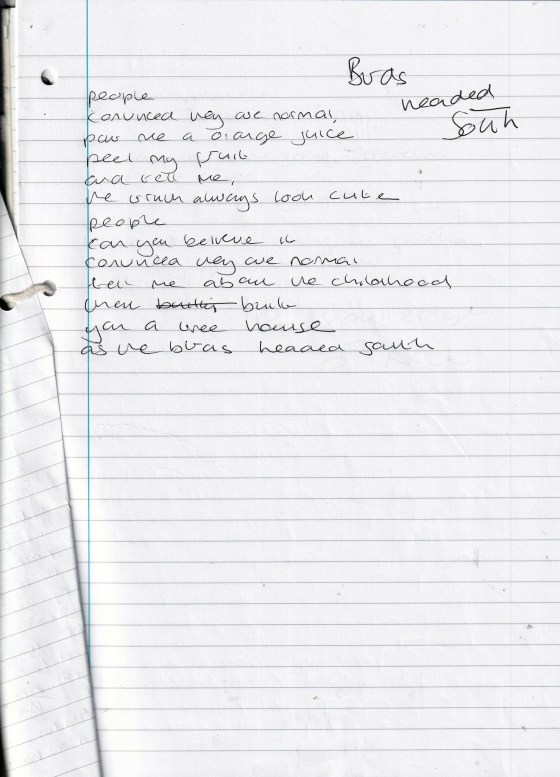 Birds
headed
South
people
convinced they are normal,
pour me a orange juice
peel my fruit
and tell me,
the truth always look cute
people
can you believe it
convinced they are normal
tell me about the childhood
built
you a tree house
as the birds headed south